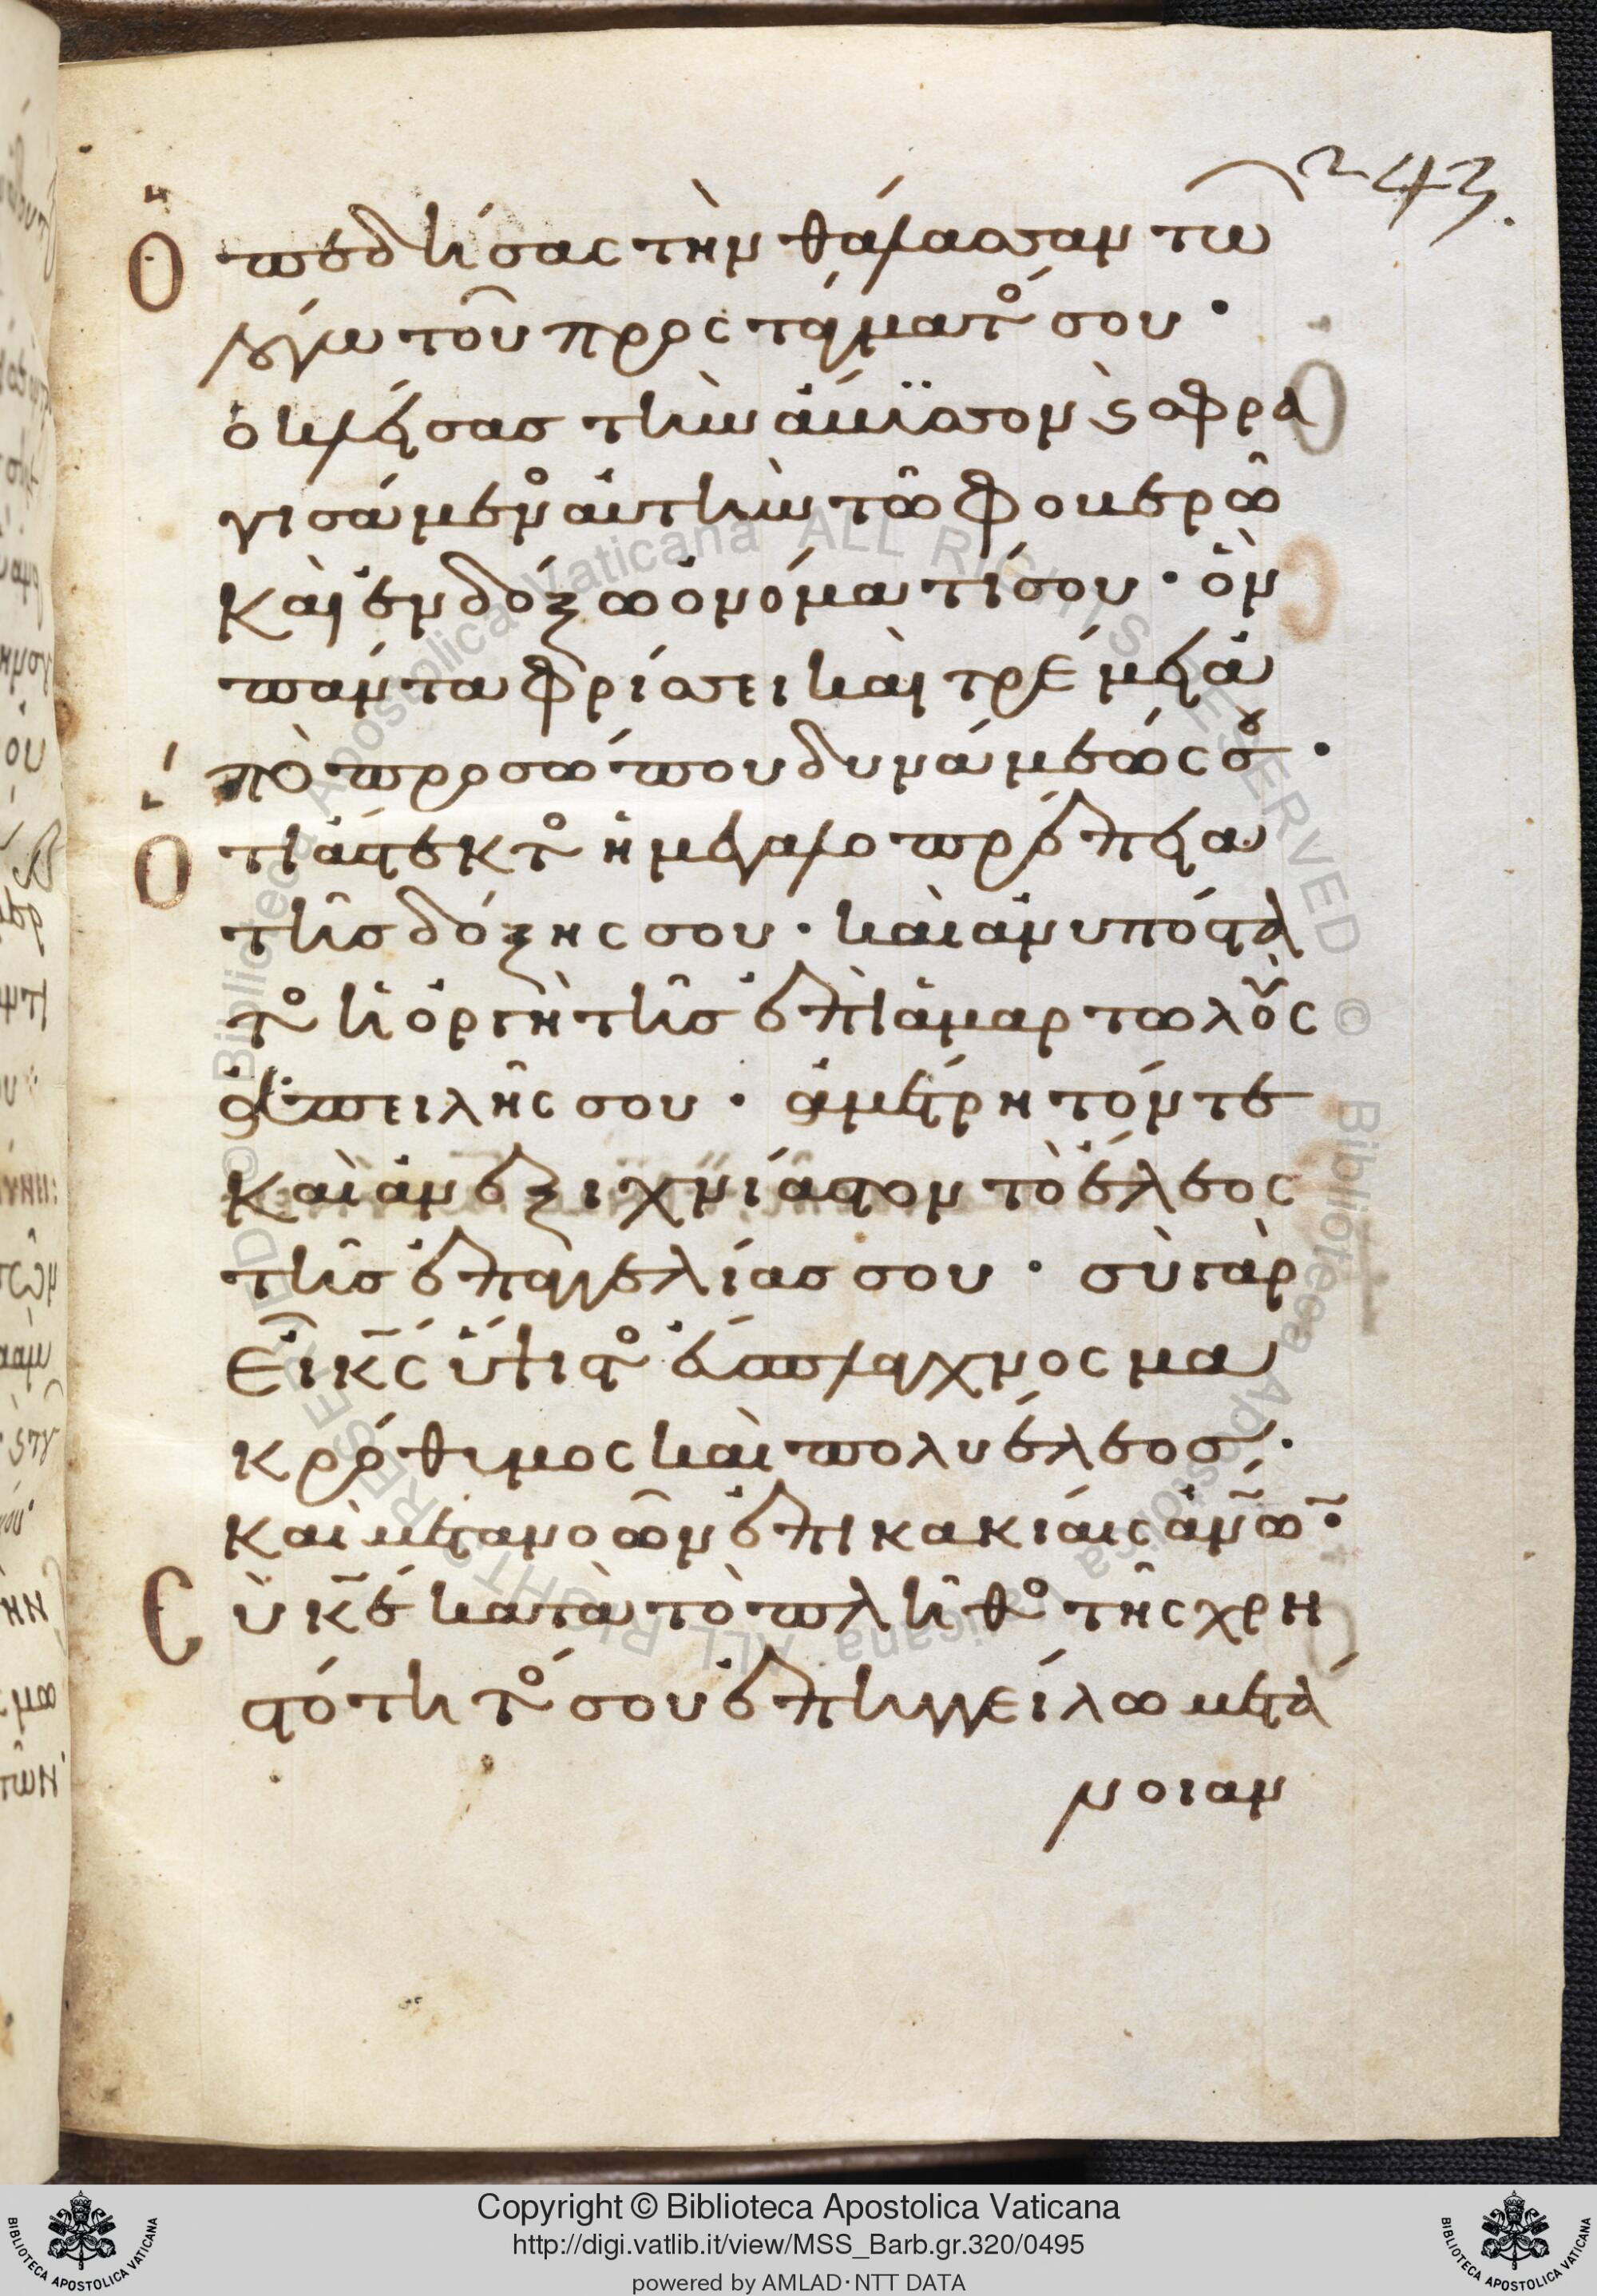 243.
Ὁ πεδήσας τὴν θάλασσαν τῶ
λόγω τοῦ προστάγματός σου·
ὁ κλείσας τὴν ἄβυσσον ϗ σφρα
γισάμενος αὐτὴν τῶ φοβερῶ
καὶ ἐνδόξω ὀνόματί σου· ὃν
πάντα φρίσσει καὶ τρέμει ἀ
πὸ προσώπου δυνάμεώς σου·
Ὅτι ἄστεκτος ἡ μεγαλοπρέπεια
τῆς δόξης σου· καὶ ἀνυπόστα
τος ἡ ὀργὴ τῆς ἐπὶ ἁμαρτωλοὺς
ἀπειλῆς σου· ἀμέτρητόν τε
καὶ ἀνεξιχνίαστον τὸ ἔλεος
τῆς ἐπαγγελίας σου· σὺ γὰρ
εἶ κ̅ς̅ ὕψιστος εὔσπλαγχνος μα
κρόθυμος καὶ πολυέλεος·
καὶ μετανοῶν ἐπὶ κακίαις ἀν̅ω̅ν·
Σὺ κ̅ε̅ κατὰ τὸ πλῆθος τῆς χρη
στότητός σου ἐπηγγείλω μετά
νοιαν
Copyright © Biblioteca Apostolica Vaticana
http://digi.vatlib.it/view/MSS_Barb.gr.320/0495
powered by AMLAD·NTT DATA